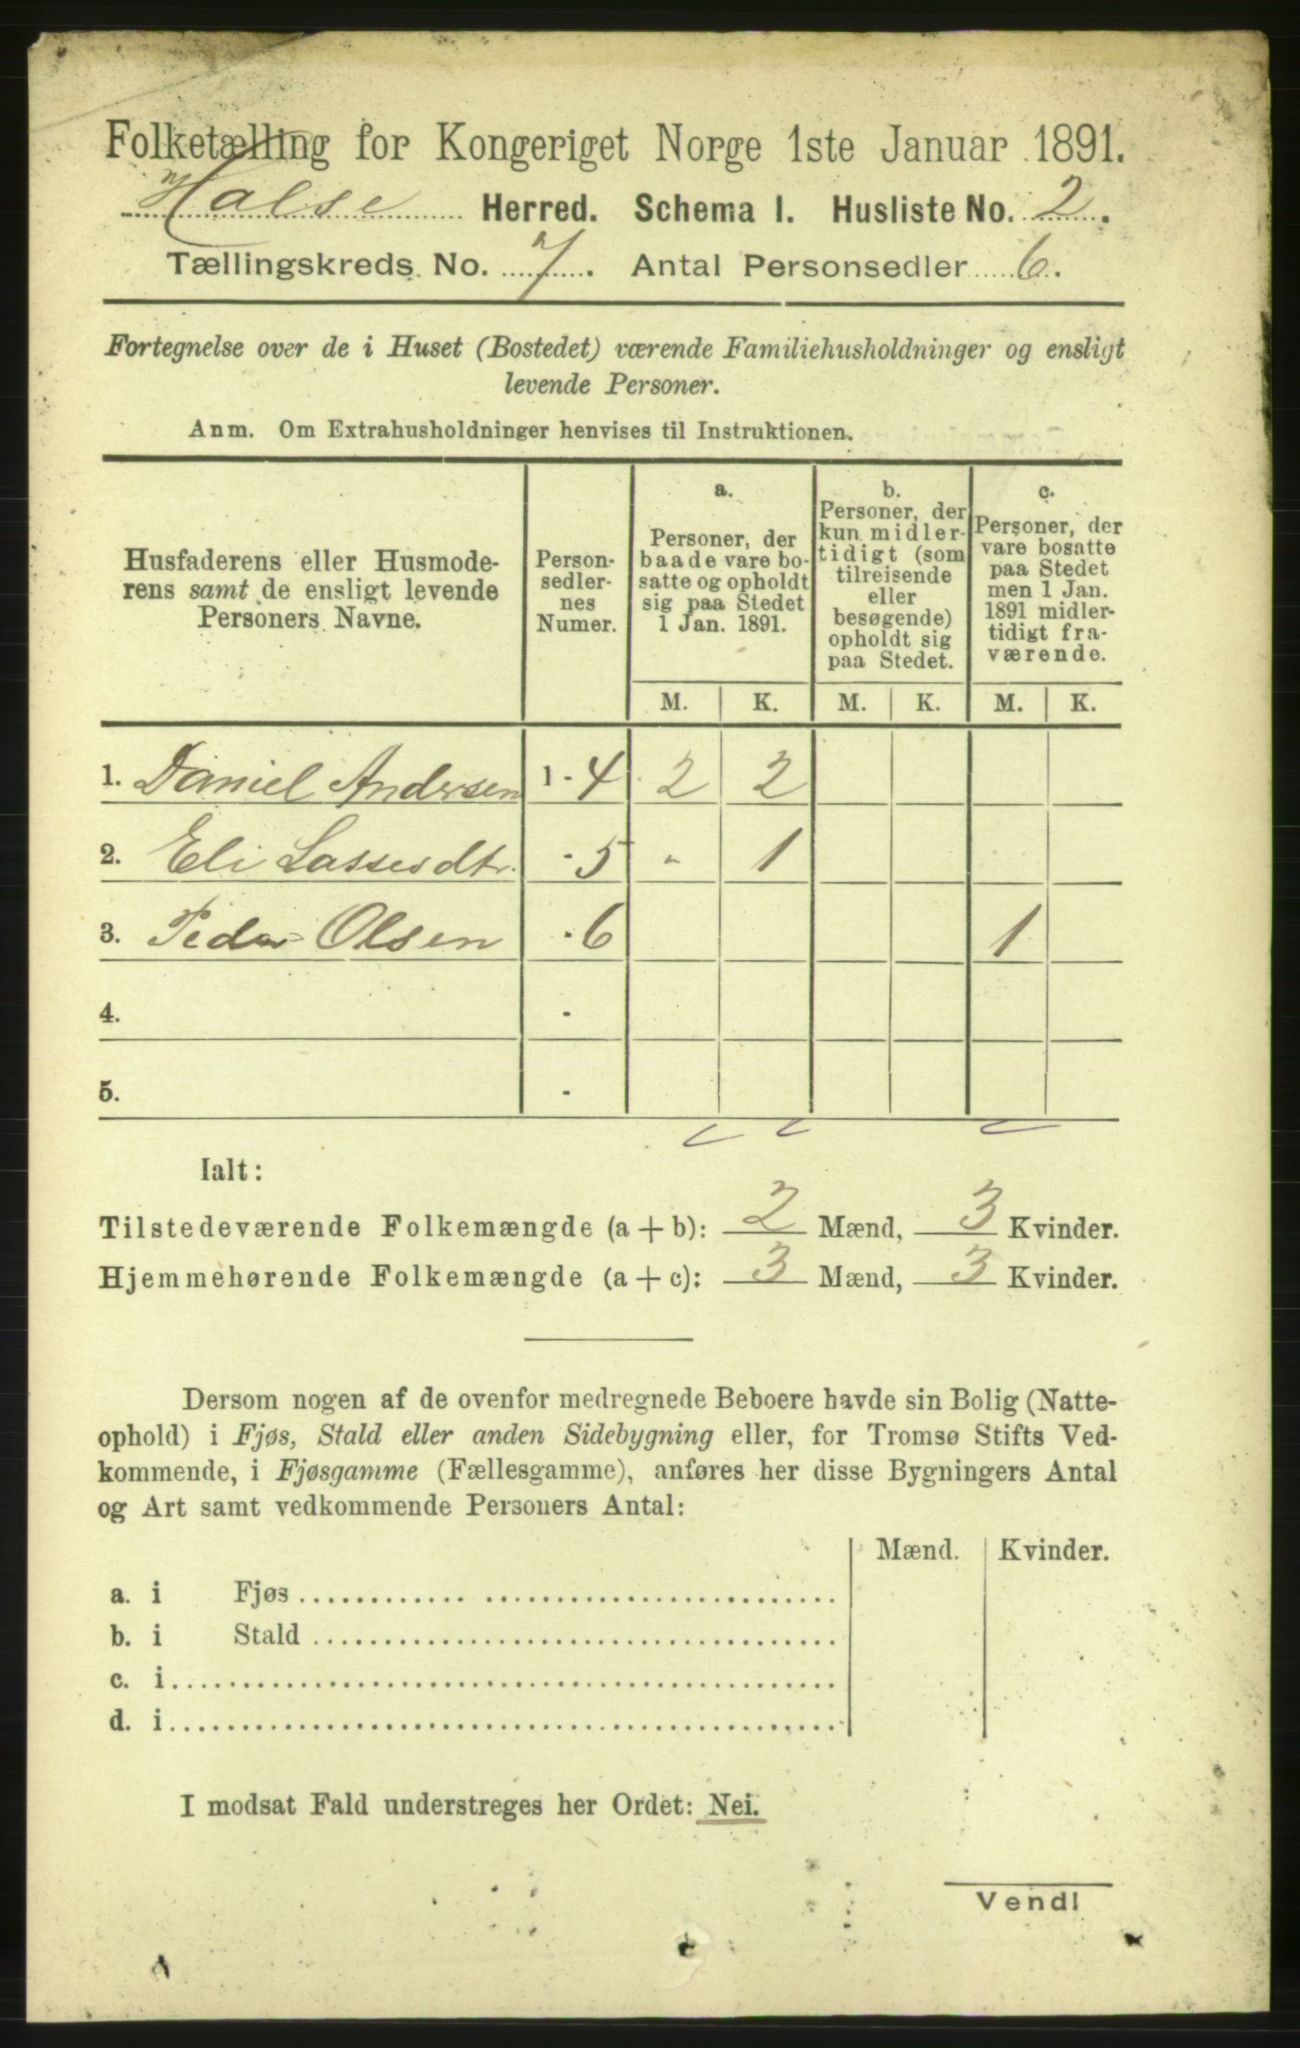 Folketælling for Kongeriget Norge 1ste Januar 1891.
Halse Herred. Schema I. Husliste No. 2.
Tællingskreds No. 7. Antal Personsedler 6.
Fortegnelse over de i Huset (Bostedet) værende Familiehusholdninger og ensligt
levende Personer.
Anm. Om Extrahusholdninger henvises til Instruktionen.
Husfaderens eller Husmode-
rens samt de ensligt levende
Personers Navne.
Person-
sedler-
nes
Numer.
a.
Personer, der
baade vare bo-
satte og opholdt
sig paa Stedet
1 Jan. 1891.
b.
Personer, der
kun midler-
tidigt (som
tilreisende
eller
besøgende)
opholdt sig
paa Stedet.
c.
Personer, der
vare bosatte
paa Stedet
men 1 Jan.
1891 midler-
tidigt fra-
værende.
M. K. M. K. M. K.
1. Daniel Andersen 1 - 4 2 2
2. Eli Lassesdtr. - 5 - 1
3. Peder Olsen - 6 1
4. -
5. -
Ialt:
Tilstedeværende Folkemængde (a + b): 2 Mænd, 3 Kvinder.
Hjemmehørende Folkemængde (a + c): 3 Mænd, 3 Kvinder.
Dersom nogen af de ovenfor medregnede Beboere havde sin Bolig (Natte-
ophold) i Fjøs, Stald eller anden Sidebygning eller, for Tromsø Stifts Ved-
kommende, i Fjøsgamme (Fællesgamme), anføres her disse Bygningers Antal
og Art samt vedkommende Personers Antal:
Mænd. Kvinder.
a. i Fjøs
b. i Stald
c. i
d. i
I modsat Fald understreges her Ordet: Nei.
Vend!